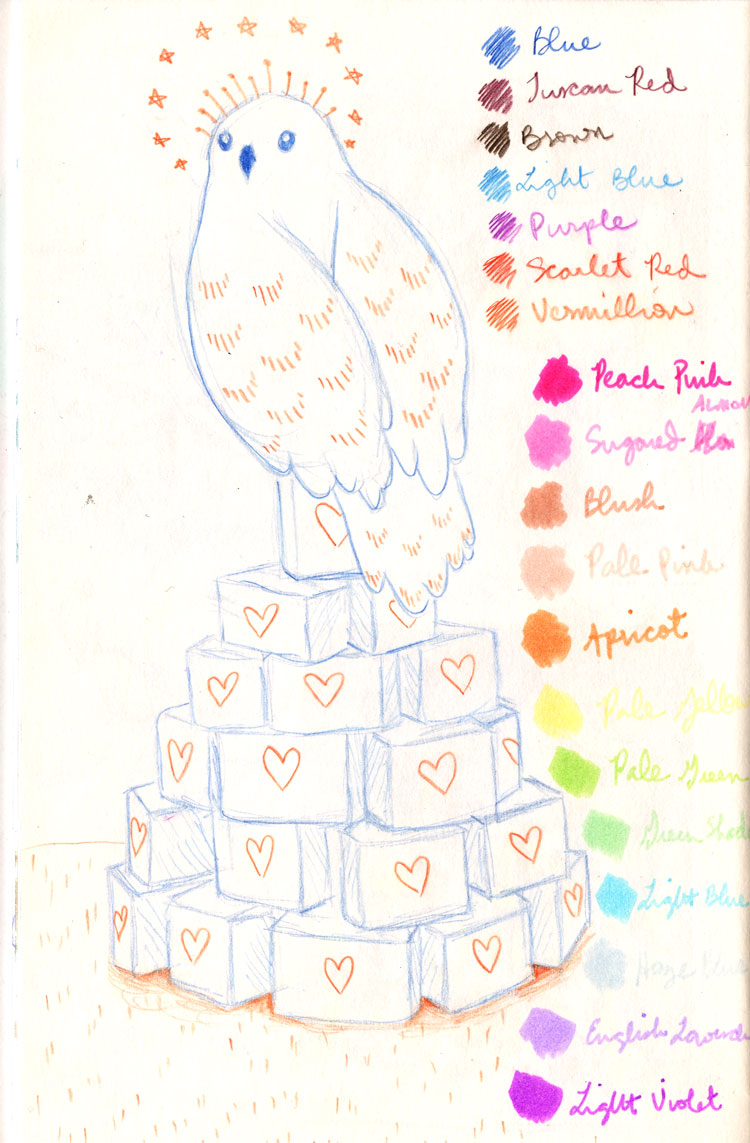 Blue
Tuscan Red
Brown
Light Blue
Purple
Scarlet Red
Vermillion
Peach Pink
Almon
Sugared
Blush
Pale Pink
Apricot
Pale Yellow
Pale Green
Green Shad
Light Blue
English Lavend
Light Violet